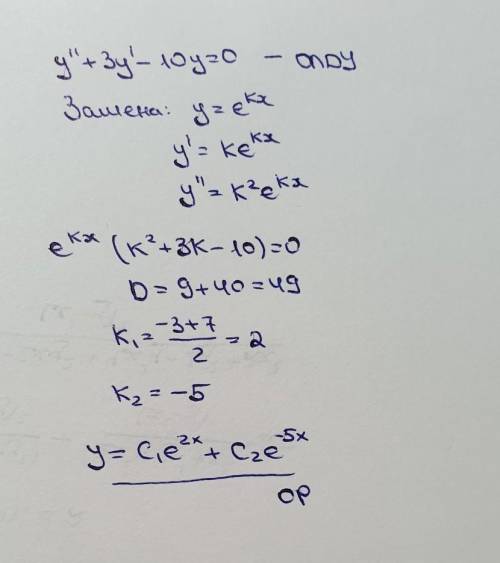 y'' + 3y' - 10y = 0 - ОЛДУ
Замена: y = e^kx
y' = ke^kx
y'' = k²e^kx
e^kx (k² + 3k - 10) = 0
D = 9 + 40 = 49
k₁ = (-3+7)/2 = 2
k₂ = -5
y = C₁e^2x + C₂e^-5x
ОР